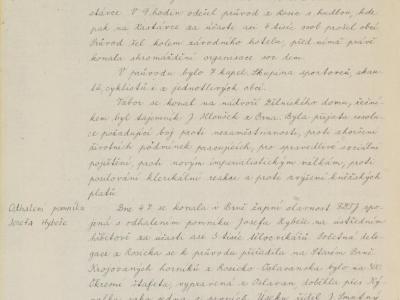 stávce. V 9 hodin odešel průvod z Rosic s hudbou, kde
pak na Kratávce za účasti asi 4 tisíc osob prošel obcí.
Průvod šel kolem závodního hotelu, před nímž právě
konala shromáždění organisace soc. dem.
V průvodu bylo 7 kapel. Skupina sportovců, skau-
tů, cyklistů i z jednotlivých obcí.
Tábor se konal na nádvoří Dělnického domu, řeční-
kem byl tajemník J. z Brna. Byla přijata resolu-
ce požadující boj proti nezaměstnanosti, proti zhoršení
životních podmínek pracujících, pro spravedlivé sociální
pojištění, proti novým imperialistickým válkám, proti
posilování klerikální reakce a proti zvýšení kněžských
platů.
Odhalení pomníku
Josefa Hybeše
Dne 4.7. se konala v Brně župní slavnost spo-
jená s odhalením pomníku Josefa Hybeše na ústředním
hřbitově za účasti asi 3 tisíc tělocvikářů. Početná dele-
gace z Rosicka se k průvodu přiřadila na Starém Brně.
Krojovaných horníků z Rosicko-Oslavanska bylo na 300.
Okrem štafeta, vypravená z Oslavan, doběhla přes